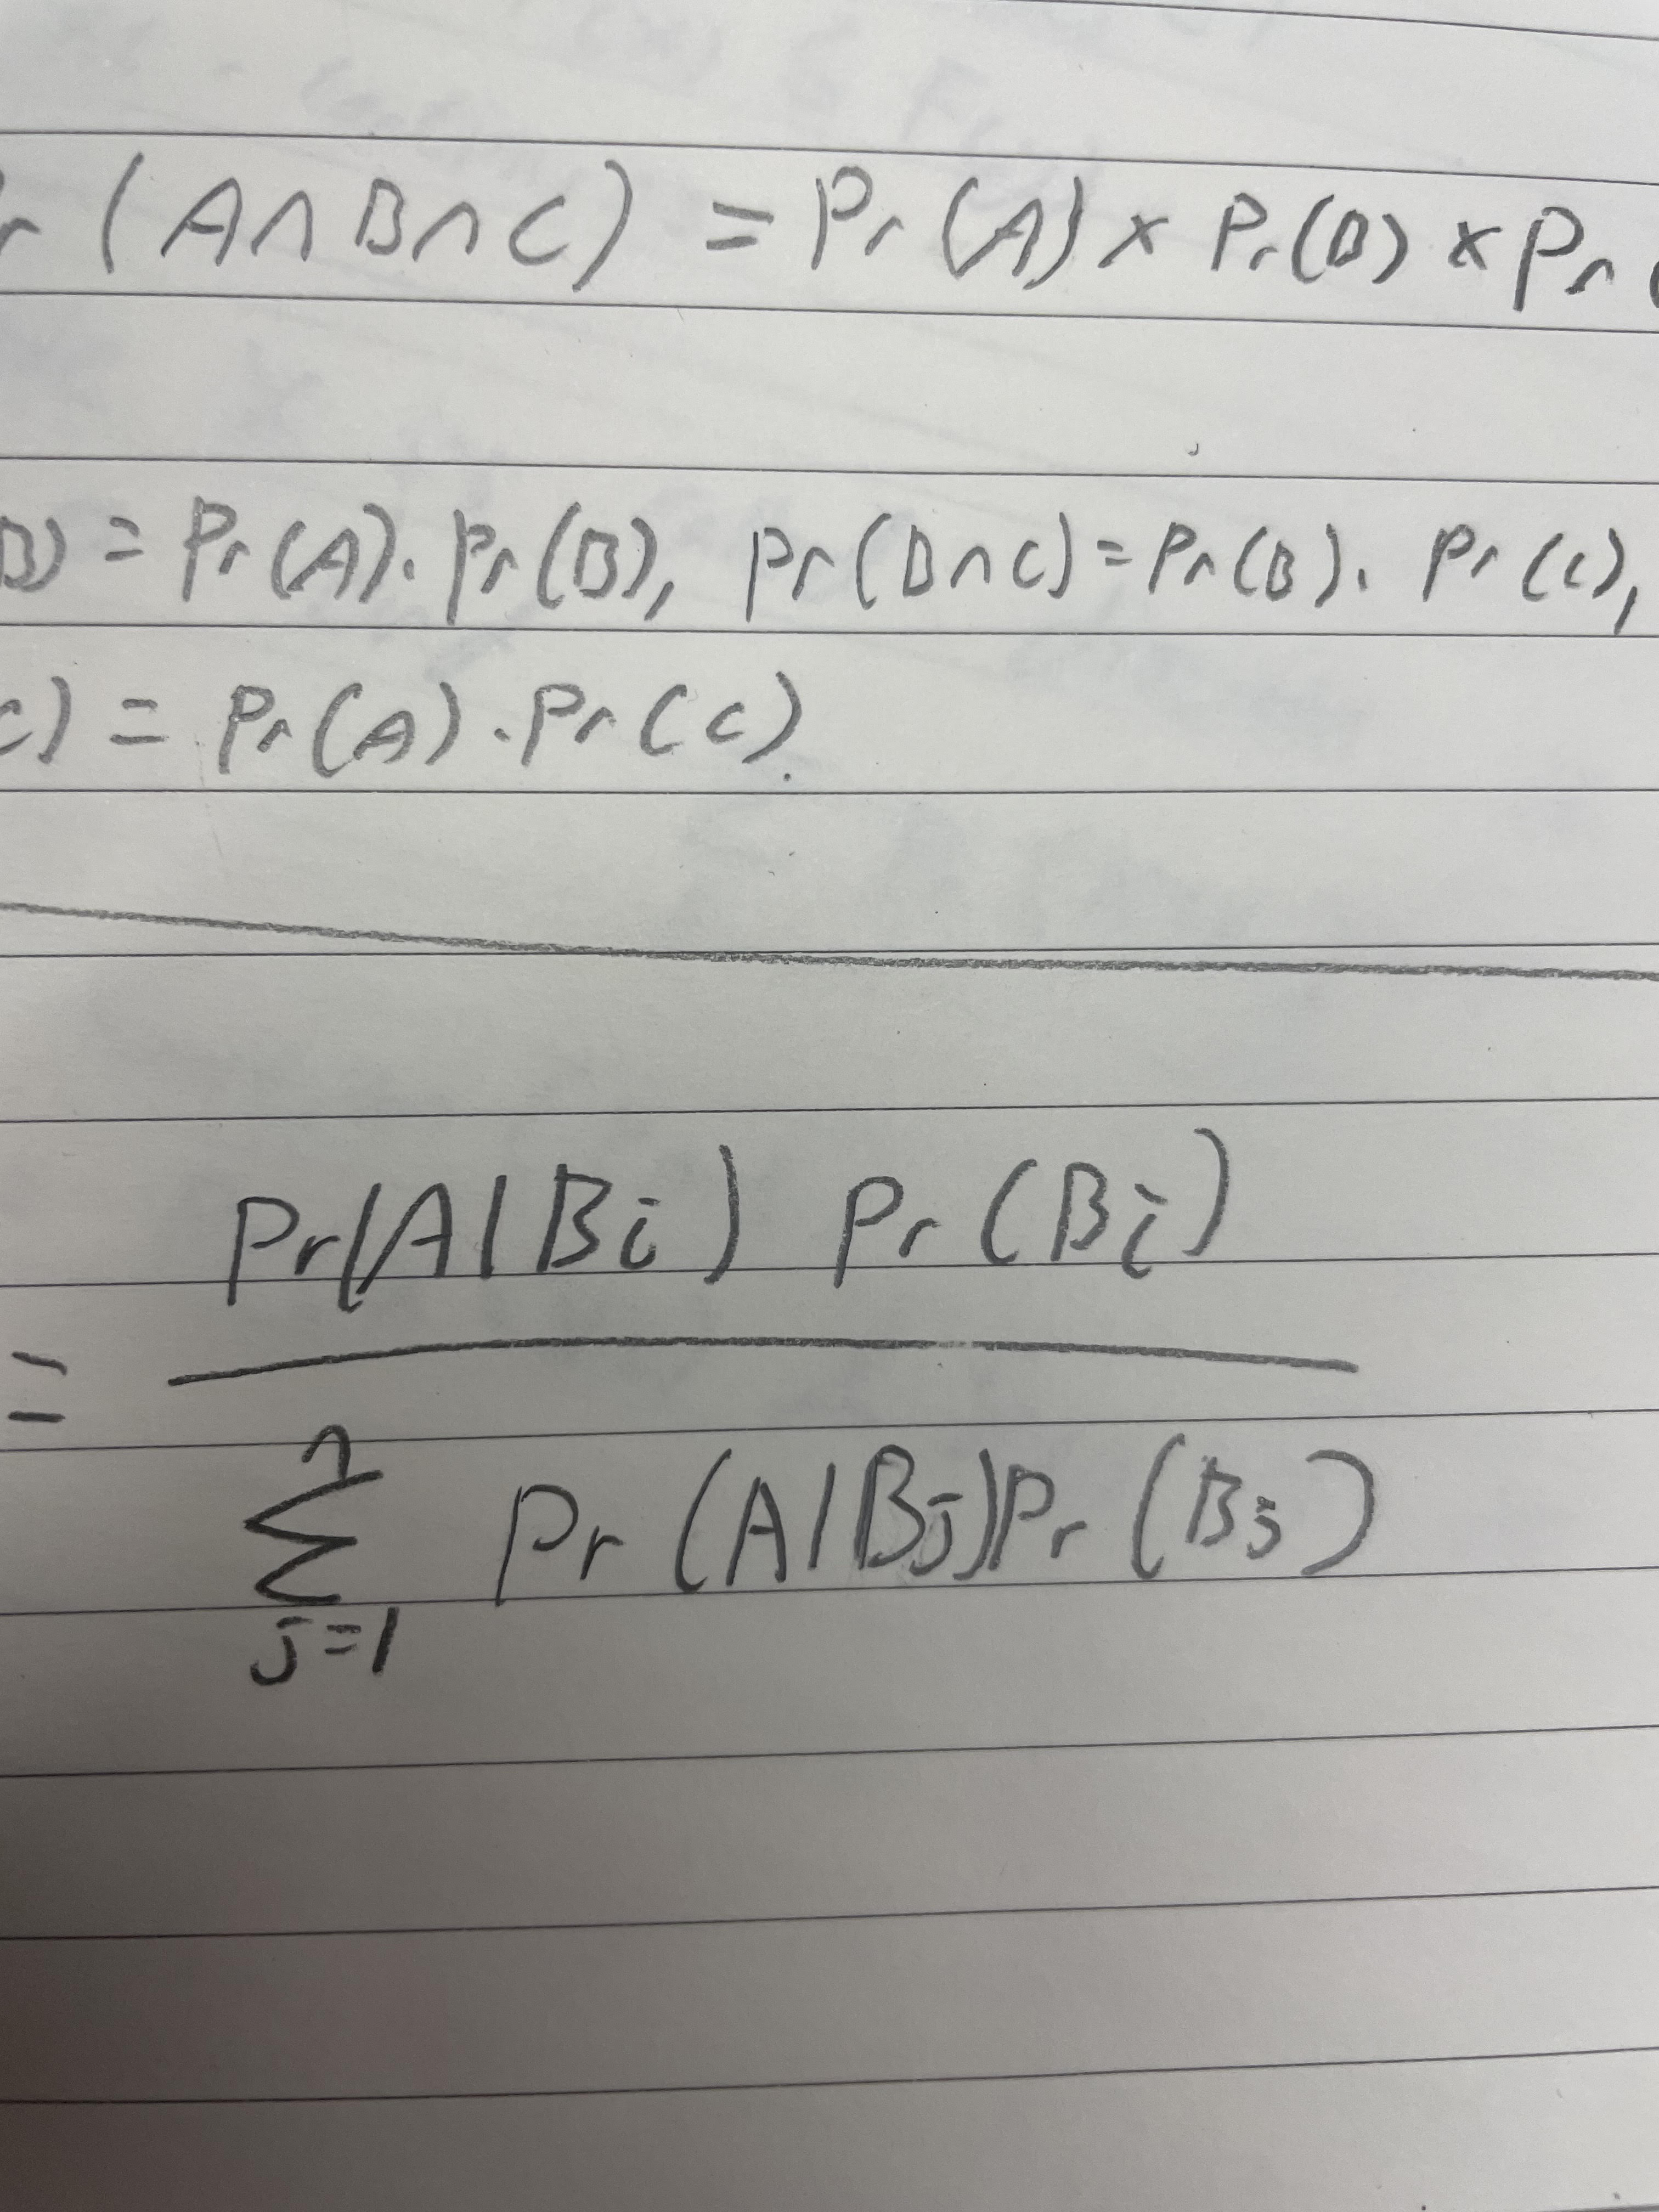 r (A∩B∩C) = Pr(A) × Pr(B) × Pr(
B) = Pr(A). Pr(B), Pr(B∩C) = Pr(B). Pr(C),
C) = Pr(A). Pr(C).
Pr(A|Bi) Pr(Bi)
=
n
∑ Pr(A|Bj)Pr(Bj)
j=1